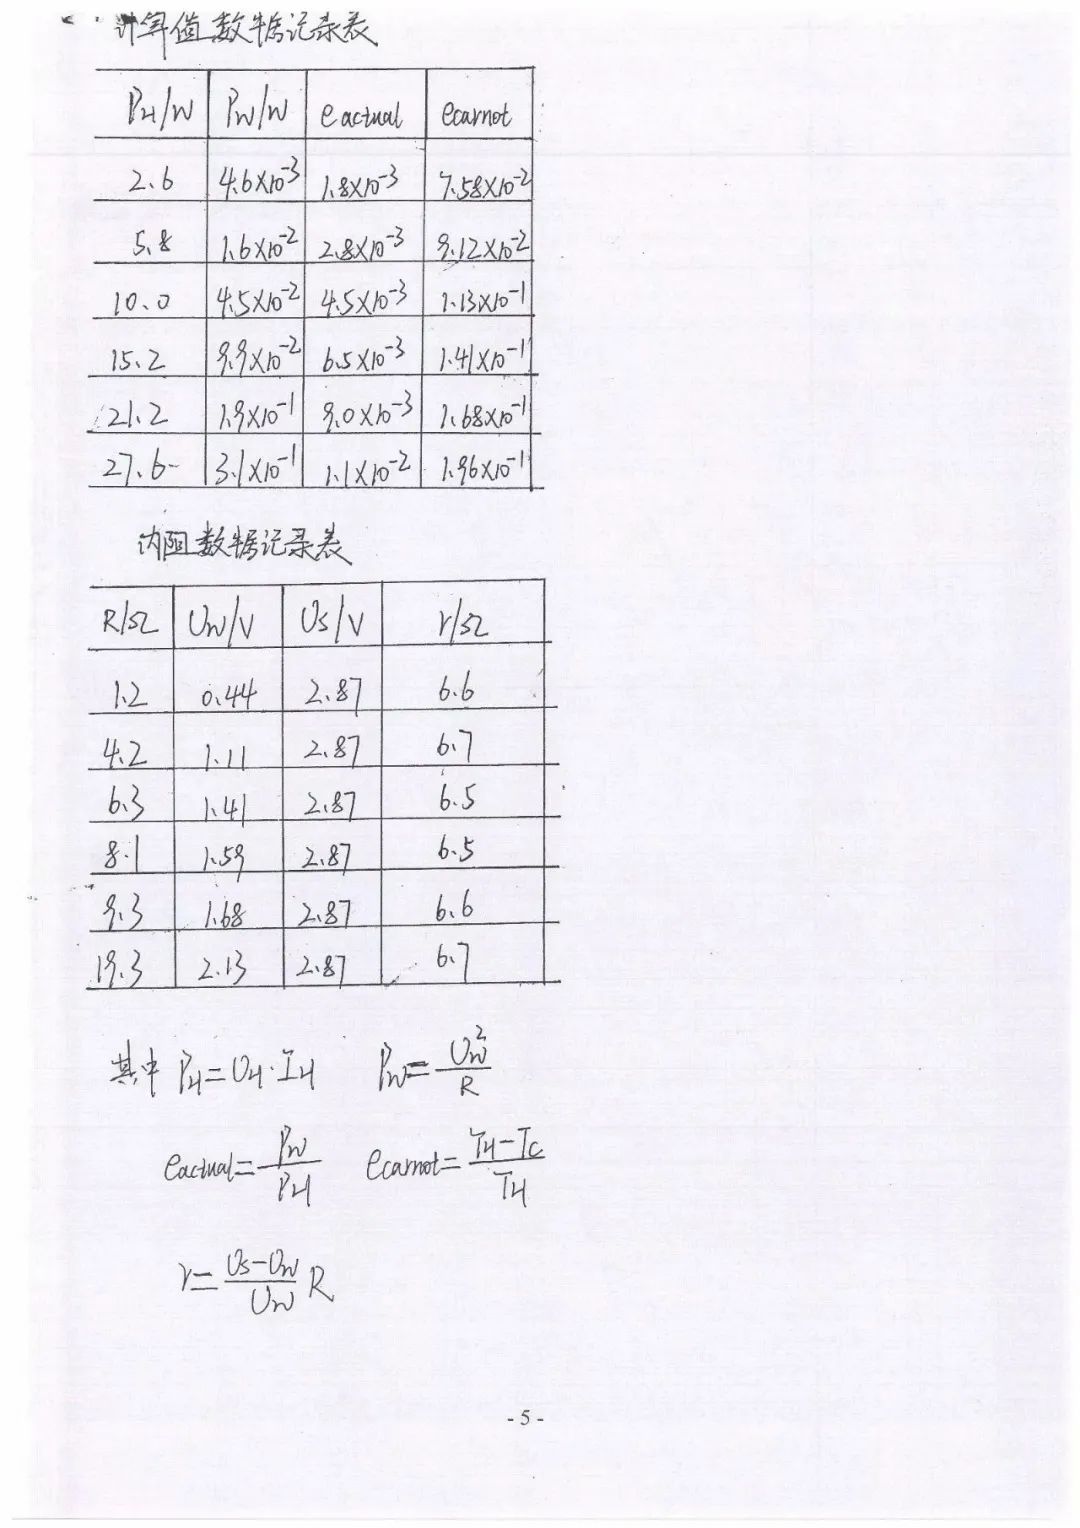 计算值数据记录表
PH/W PW/W eactual ecarnot
2.6 4.6×10⁻³ 1.8×10⁻³ 7.58×10⁻²
5.8 1.6×10⁻² 2.8×10⁻³ 9.12×10⁻²
10.0 4.5×10⁻² 4.5×10⁻³ 1.13×10⁻¹
15.2 9.9×10⁻² 6.5×10⁻³ 1.41×10⁻¹
21.2 1.9×10⁻¹ 9.0×10⁻³ 1.68×10⁻¹
27.6 3.1×10⁻¹ 1.1×10⁻² 1.96×10⁻¹
内阻数据记录表
R/Ω UW/V US/V r/Ω
1.2 0.44 2.87 6.6
4.2 1.11 2.87 6.7
6.3 1.41 2.87 6.5
8.1 1.59 2.87 6.5
9.3 1.68 2.87 6.6
19.3 2.13 2.87 6.7
其中 PH=UH·IH PW=UW²/R
eactual=PW/PH ecarnot=(TH-TC)/TH
r=(US-UW)/UW R
- 5 -